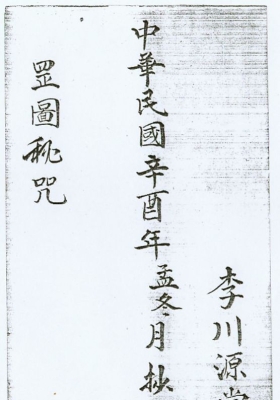 李川源
中華民國辛酉年孟冬月抄
罡圖秘咒